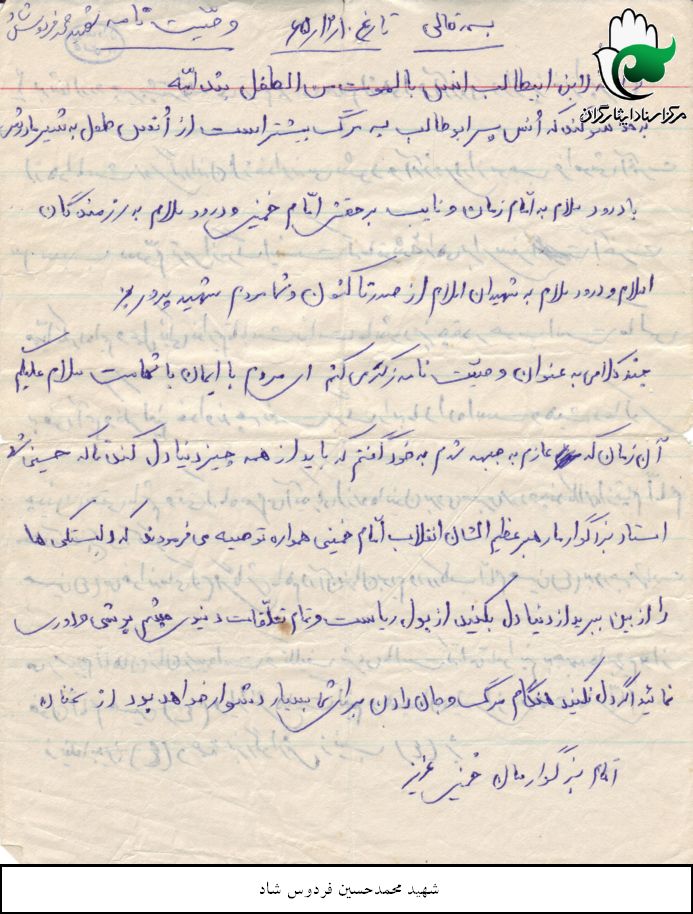 بسمه تعالی تاریخ ۶۵/۲/۱۰ وصیّت نامه شهید محمد فردوس
مرکز اسناد ایثارگران
لابن ابیطالب انس بالموت من الطفل بثدامّه
به خدا سوگند که اُنس پسر ابوطالب به مرگ بیشتر است از اُنس طفل به شیر مادرش
با درود و سلام به امّام زمان و نایب بر حقش امّام خمینی و درود و سلام به رزمندگان
اسلام و درود و سلام به شهیدان اسلام از صدر تا کنون و شما مردم شهید پرور
چند کلامی به عنوان وصیّت نامه ذکر می کنم ای مردم با ایمان با شهامت سلام علیکم
آن زمان که عازم به جبهه شدم به خود گفتم که باید از همه چیز دنیا دل کند تا که حسینی شد
استاد بزرگوار ما رهبر عظیم الشان انقلاب امّام خمینی همواره توصیه می فرمودند که وابستگی ها
را از بین ببرید از دنیا دل بکنید از پول ریاست و تمام تعلّقات دنیوی چشم پوشی
نمائید اگر دل نکنید هنگام مرگ و جان دادن برای شما بسیار دشوار خواهد بود از سخنان
امّام بزرگوارمان خمینی عزیز
شهید محمدحسین فردوس شاد